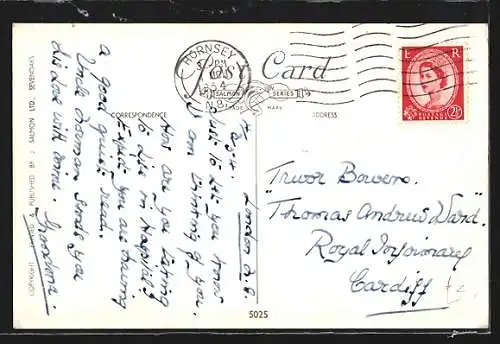 COPYRIGHT PRINTED & PUBLISHED BY J SALMON LTD. SEVENOAKS
HORNSEY
PM
1954
N.8
Post Card
SALMON
SERIES
TRADE MARK
CORRESPONDENCE
ADDRESS
London N.8.
Just to let you know
I am thinking of you.
How are you liking
to be in Hospital?
Expect you are having
a good quiet read.
Uncle Norman sends you
his love with mine.
E R
POSTAGE REVENUE
2½
Trevor Bowens.
"Thomas Andrew Ward".
Royal Infirmary
Cardiff
5025